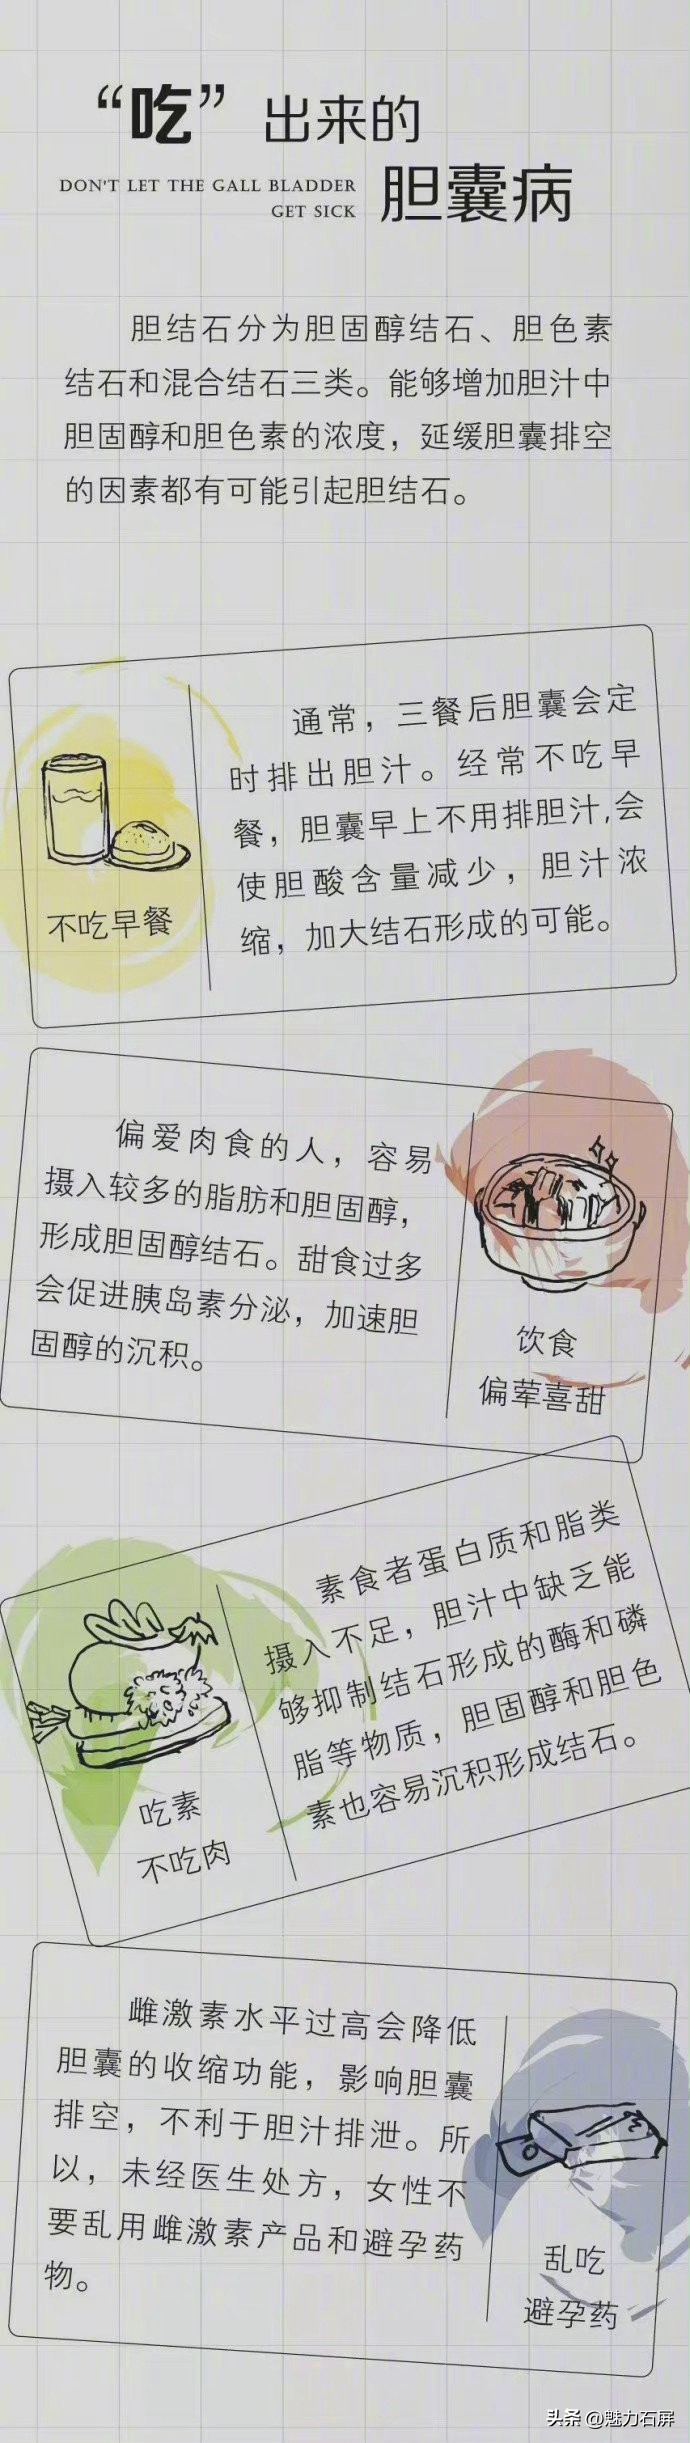 “吃”出来的
DON'T LET THE GALL BLADDER
GET SICK
胆囊病
胆结石分为胆固醇结石、胆色素
结石和混合结石三类。能够增加胆汁中
胆固醇和胆色素的浓度，延缓胆囊排空
的因素都有可能引起胆结石。
不吃早餐
通常，三餐后胆囊会定
时排出胆汁。经常不吃早
餐，胆囊早上不用排胆汁,会
使胆酸含量减少，胆汁浓
缩，加大结石形成的可能。
偏爱肉食的人，容易
摄入较多的脂肪和胆固醇，
形成胆固醇结石。甜食过多
会促进胰岛素分泌，加速胆
固醇的沉积。
饮食
偏荤喜甜
素食者蛋白质和脂类
摄入不足，胆汁中缺乏能
够抑制结石形成的酶和磷
脂等物质，胆固醇和胆色
素也容易沉积形成结石。
吃素
不吃肉
雌激素水平过高会降低
胆囊的收缩功能，影响胆囊
排空，不利于胆汁排泄。所
以，未经医生处方，女性不
要乱用雌激素产品和避孕药
物。
乱吃
避孕药
头条 @魅力石屏